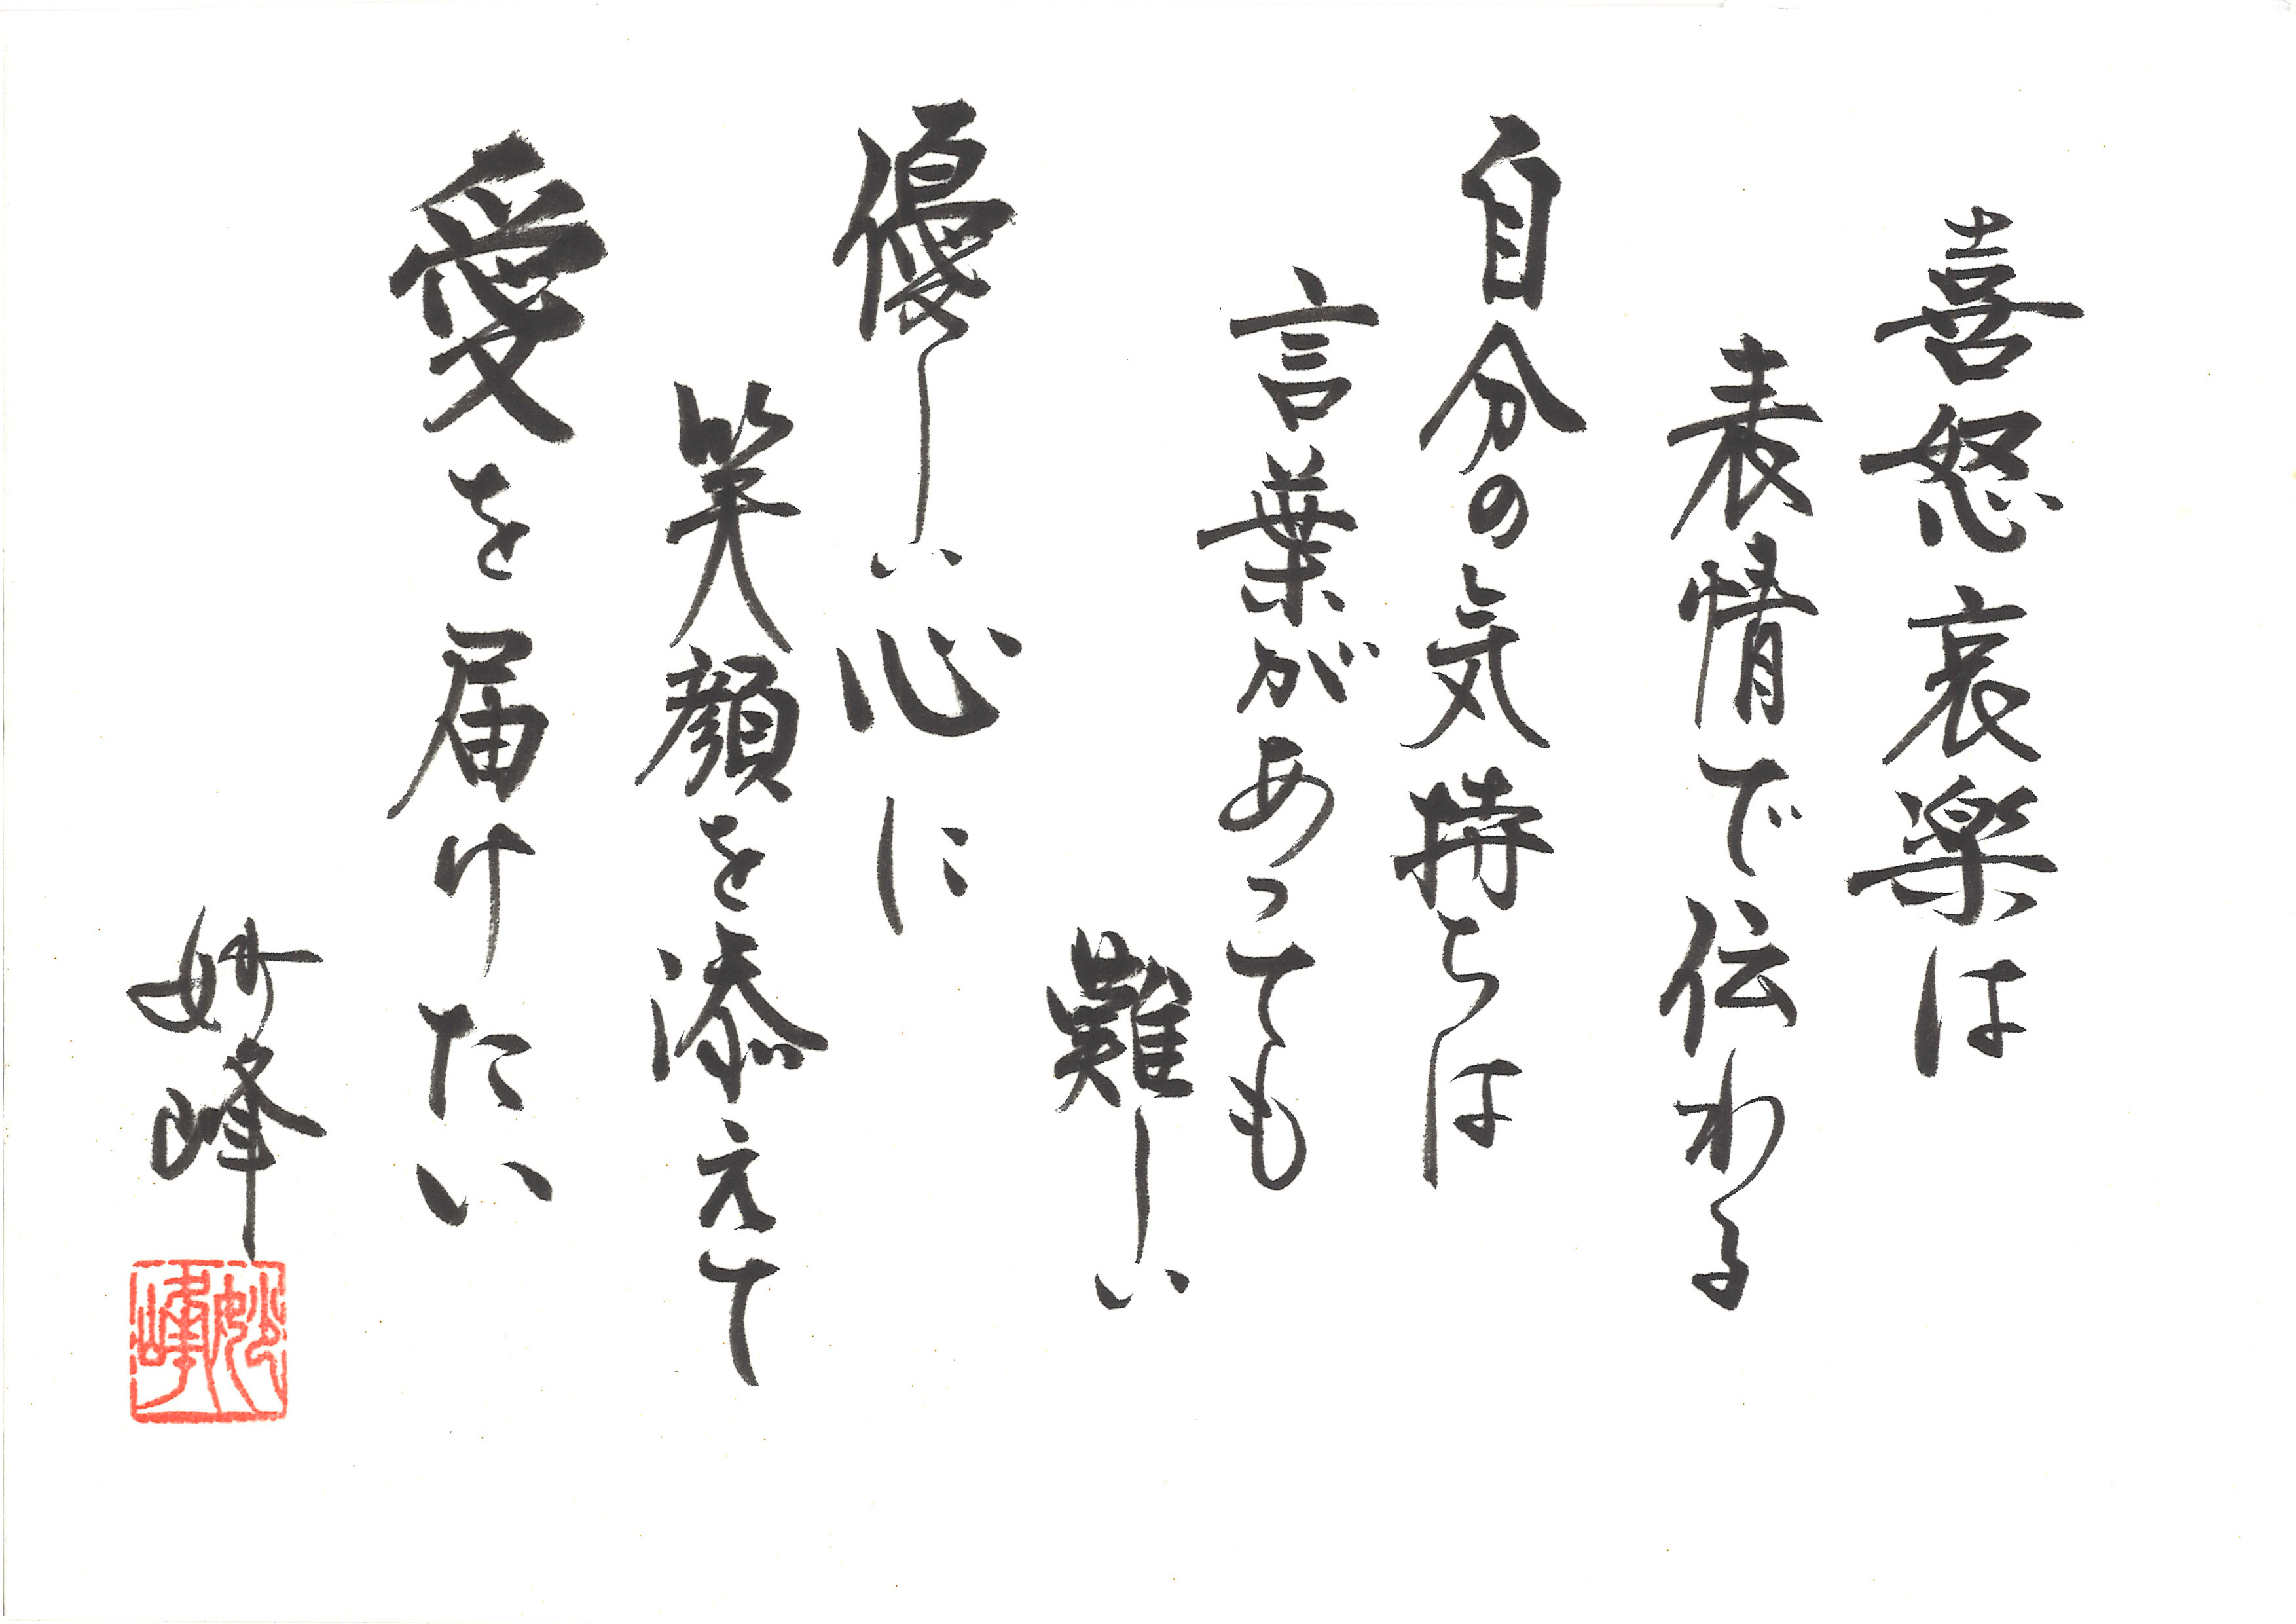 喜怒哀楽は
表情で伝わる
自分の気持ちは
言葉があっても
難しい
優しい心に
笑顔を添えて
愛を届けたい
妙峰
妙峰